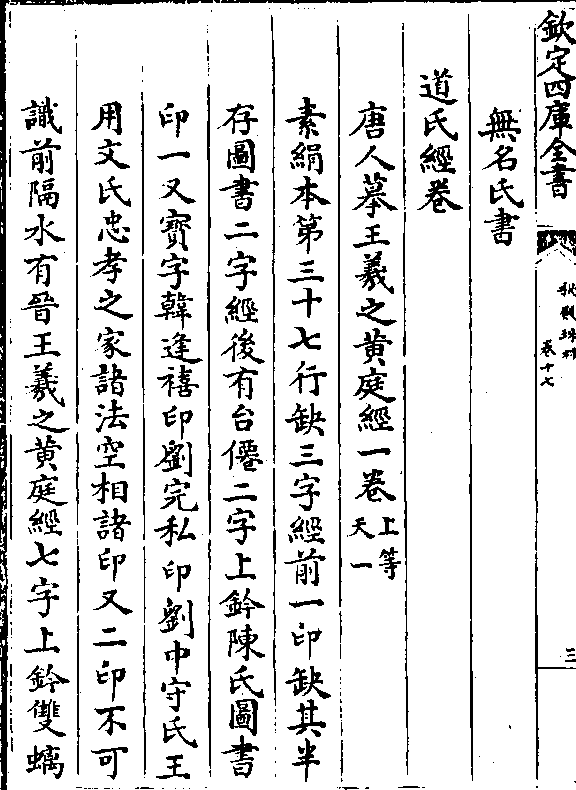 欽定四庫全書
秘殿珠林
卷十七
三
無名氏書
道氏經卷
唐人摹王羲之黄庭經一卷上等天一
素絹本第三十七行缺三字經前一印缺其半
存圖書二字經後有台僊二字上鈐陳氏圖書
印一又寳字韓逢禧印劉完私印劉中守氏王
用文氏忠孝之家諸法空相諸印又二印不可
識前隔水有晉王羲之黄庭經七字上鈐雙螭